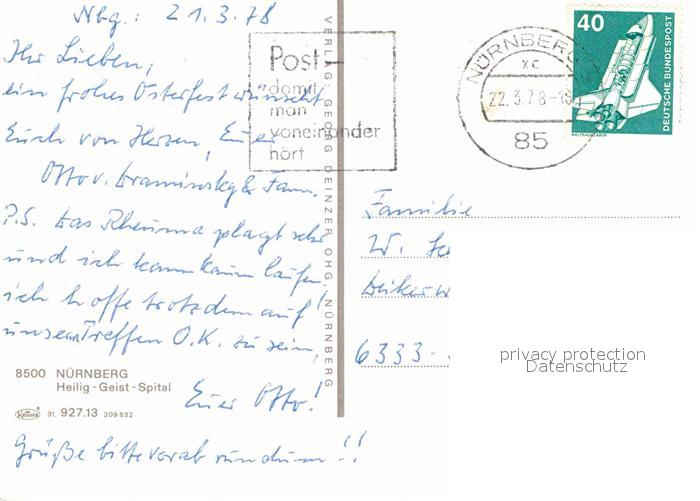 Nbg.: 21.3.78
Ihr Lieben,
ein frohes Osterfest wünscht
Euch von Herzen, Euer
Otto v. & Fam.
P.S. Das Rheuma plagt sehr
und ich kann kaum laufen,
ich hoffe trotzdem auf
unser Treffen O.K. zu sein,
Euer Otto!
Grüße bitte vorab rundum!!
8500 NÜRNBERG
Heilig-Geist-Spital
Krüger 31. 927.13 209 832
VERLAG GEORG DEINZER OHG, NÜRNBERG
Post -
damit
man
voneinander
hört
NÜRNBERG
xc
22.3.78-18
85
40
DEUTSCHE BUNDESPOST
WELTRAUMLABOR
Familie
W.
6333-
privacy protection
Datenschutz